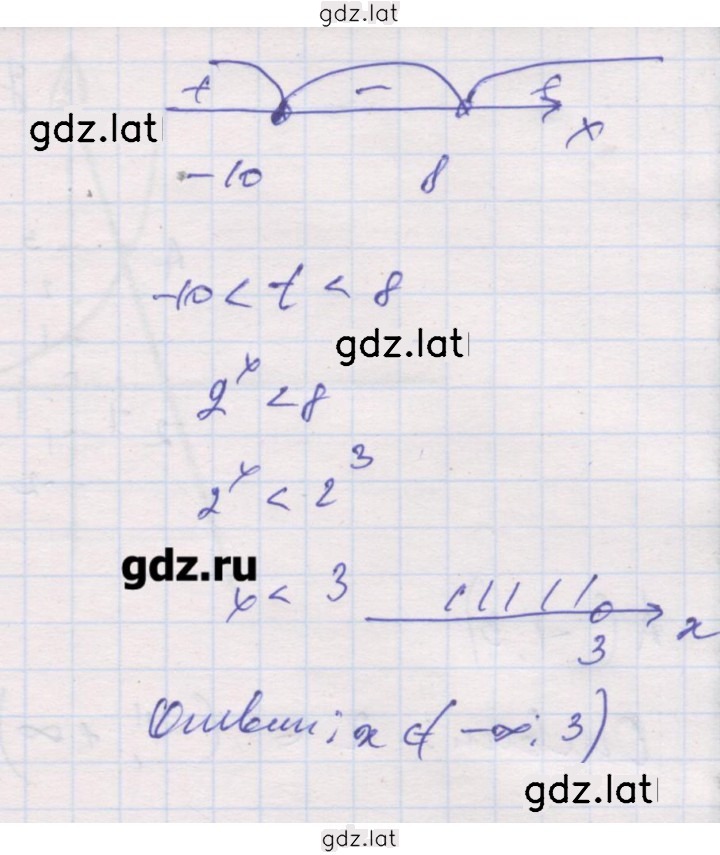 gdz.lat
+ − +
gdz.lat
x
-10 8
-10 < t < 8
gdz.lat
2^x < 8
2^x < 2^3
gdz.ru
x < 3
3 x
Ответ: x ∈ (-∞; 3)
gdz.lat
gdz.lat